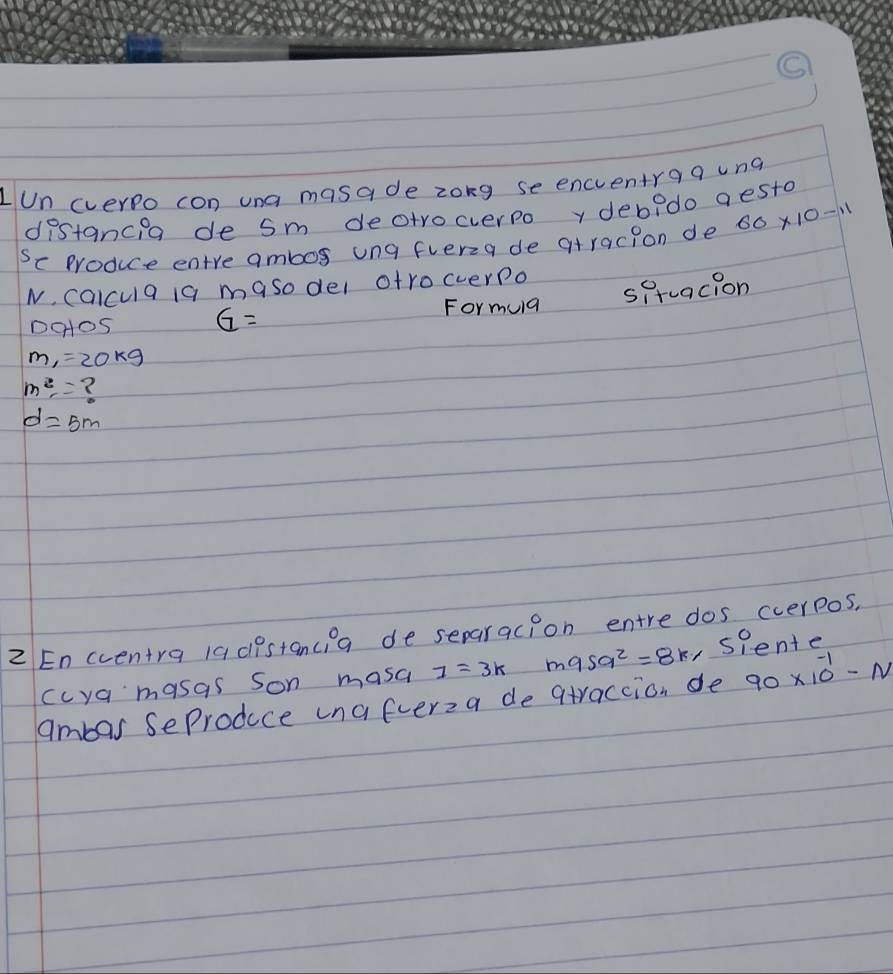 C
1 Un cuerpo con una masa de 20kg se encuentra a una
distancia de 5m de otro cuerpo y debido a esto
se produce entre ambos una fuerza de atracion de 60 x10-11
N. Calcula la maso del otro cuerpo
Datos G= Formula situacion
m₁=20kg
m²=?
d=5m
2 Encuentra la distancia de separacion entre dos cuerpos,
cuya masas son masa 1=3k masa²=8k, siente
ambas se produce una fuerza de atraccion de 90x10⁻¹ - N